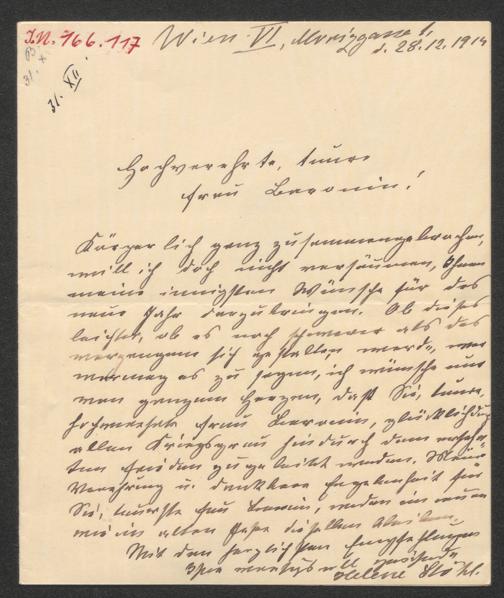 I.N. 166.117
Wien VI, Mollardgasse 6,
d. 28.12.1914
B.
x
31.
31. XII.
Hochverehrte, teure
Frau Baronin!
Körperlich ganz zusammengebrochen,
will ich doch nicht versäumen, Ihnen
meine innigsten Wünsche für das
neue Jahr darzubringen. Ob dieses
leichter, ob es noch schwerer als das
vergangene sich gestalten werde, wer
vermag es zu sagen, ich wünsche nur
von ganzem Herzen, daß Sie, teure,
hochverehrte Frau Baronin, glücklich durch
allen Kriegsgrau hindurch dem ersehn-
ten Frieden zugeleitet werden. Meine
Verehrung u. dankbare Ergebenheit für
Sie, teuerste Frau Baronin, werden im neuen
wie im alten Jahre dieselben bleiben.
Mit den herzlichsten Empfehlungen
Ihre
Helene Stökl.